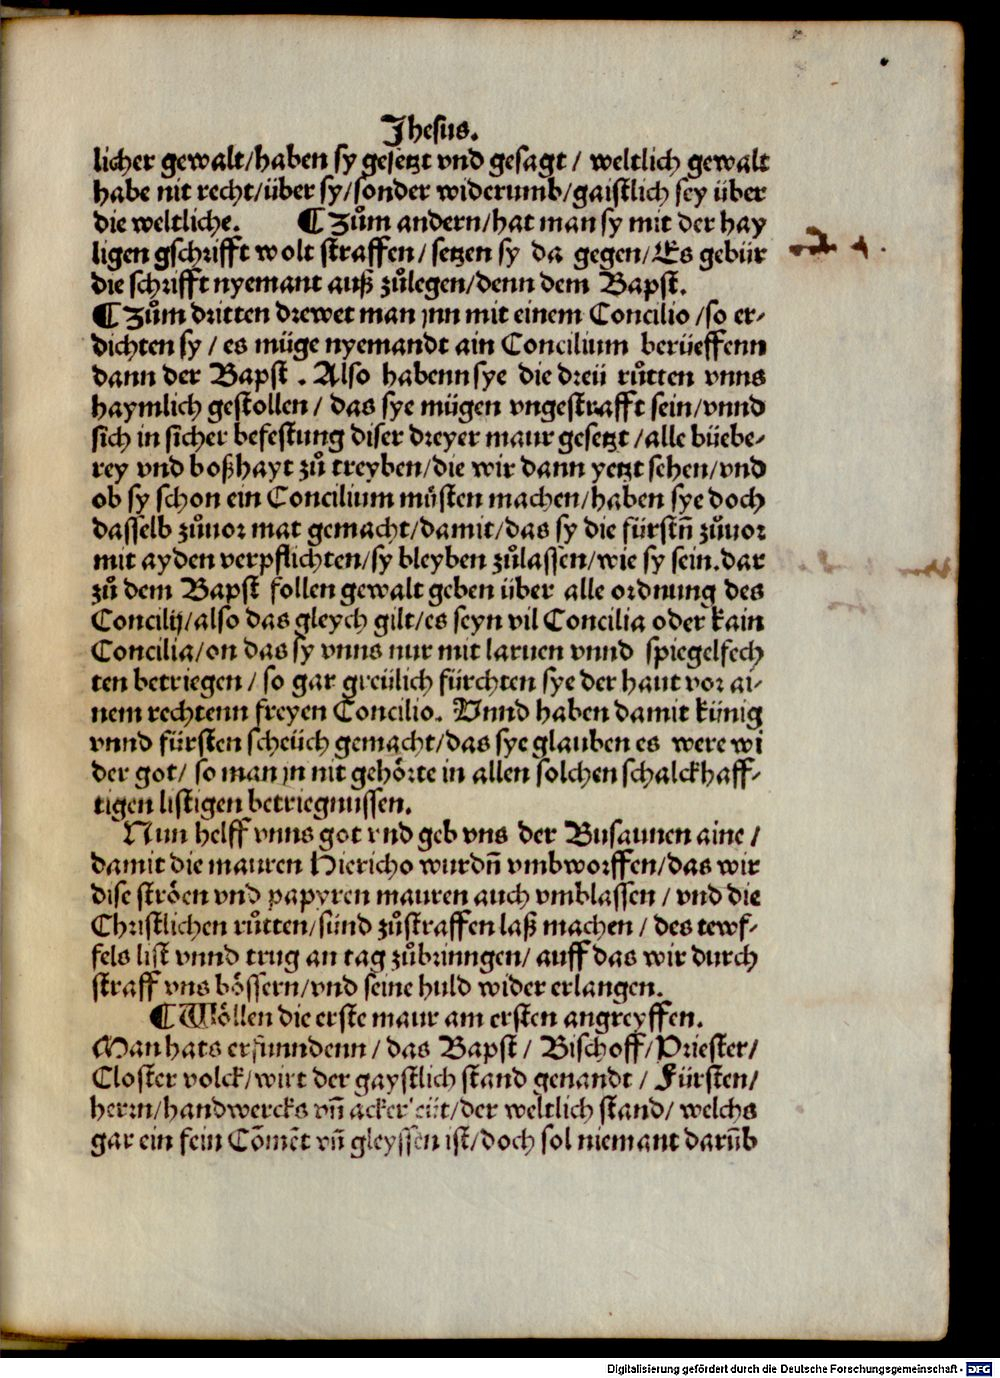 Jhesus.
licher gewalt/haben sy gesetzt vnd gesagt / weltlich gewalt
habe nit recht/über sy/sonder widerumb/gaistlich sey über
die weltliche. ¶ Zům andern/hat man sy mit der hay
ligen gschrifft wolt straffen / setzen sy da gegen/Es gebür
die schrifft nyemant auß zůlegen/denn dem Bapst.
¶ Zům dritten drewet man jnn mit einem Concilio /so er-
dichten sy / es müge nyemandt ain Concilium berüeffenn
dann der Bapst . Also habenn sye die dreü růtten vnns
haymlich gestollen / das sye mügen vngestrafft sein/vnnd
sich in sicher befestung diser dreyer maur gesetzt /alle büebe-
rey vnd boßhayt zů treyben/die wir dann yetzt sehen/vnd
ob sy schon ein Concilium můsten machen/haben sye doch
dasselb zůuor mat gemacht/damit/das sy die fürstn̄ zůuor
mit ayden verpflichten/sy bleyben zůlassen/wie sy sein.dar
zů dem Bapst follen gewalt geben über alle ordnung des
Concilij/also das gleych gilt/es seyn vil Concilia oder kain
Concilia/on das sy vnns nur mit laruen vnnd spiegelfech
ten betriegen / so gar greülich fürchten sye der haut vor ai-
nem rechtenn freyen Concilio. Vnnd haben damit künig
vnnd fürsten scheüch gemacht/das sye glauben es were wi
der got/ so man jn nit gehörte in allen solchen schalckhaff-
tigen listigen betriegnussen.
Nun helff vnns got vnd geb vns der Busaunen aine /
damit die mauren Hiericho wurdn̄ vmbworffen/das wir
dise ströen vnd papyren mauren auch vmblassen / vnd die
Christlichen růtten/sünd zůstraffen laß machen / des tewf-
fels list vnnd trug an tag zůbrinngen/ auff das wir durch
straff vns bössern/vnd seine huld wider erlangen.
¶ Wöllen die erste maur am ersten angreyffen.
Man hats erfunndenn / das Bapst / Bischoff/Priester/
Closter volck/wirt der gaystlich stand genandt / Fürsten/
herrn/handwercks vn̄ ackerleüt/der weltlich stand/ welchs
gar ein fein Cōmēt vn̄ gleyssen ist/doch sol niemant darüb
Digitalisierung gefördert durch die Deutsche Forschungsgemeinschaft - DFG